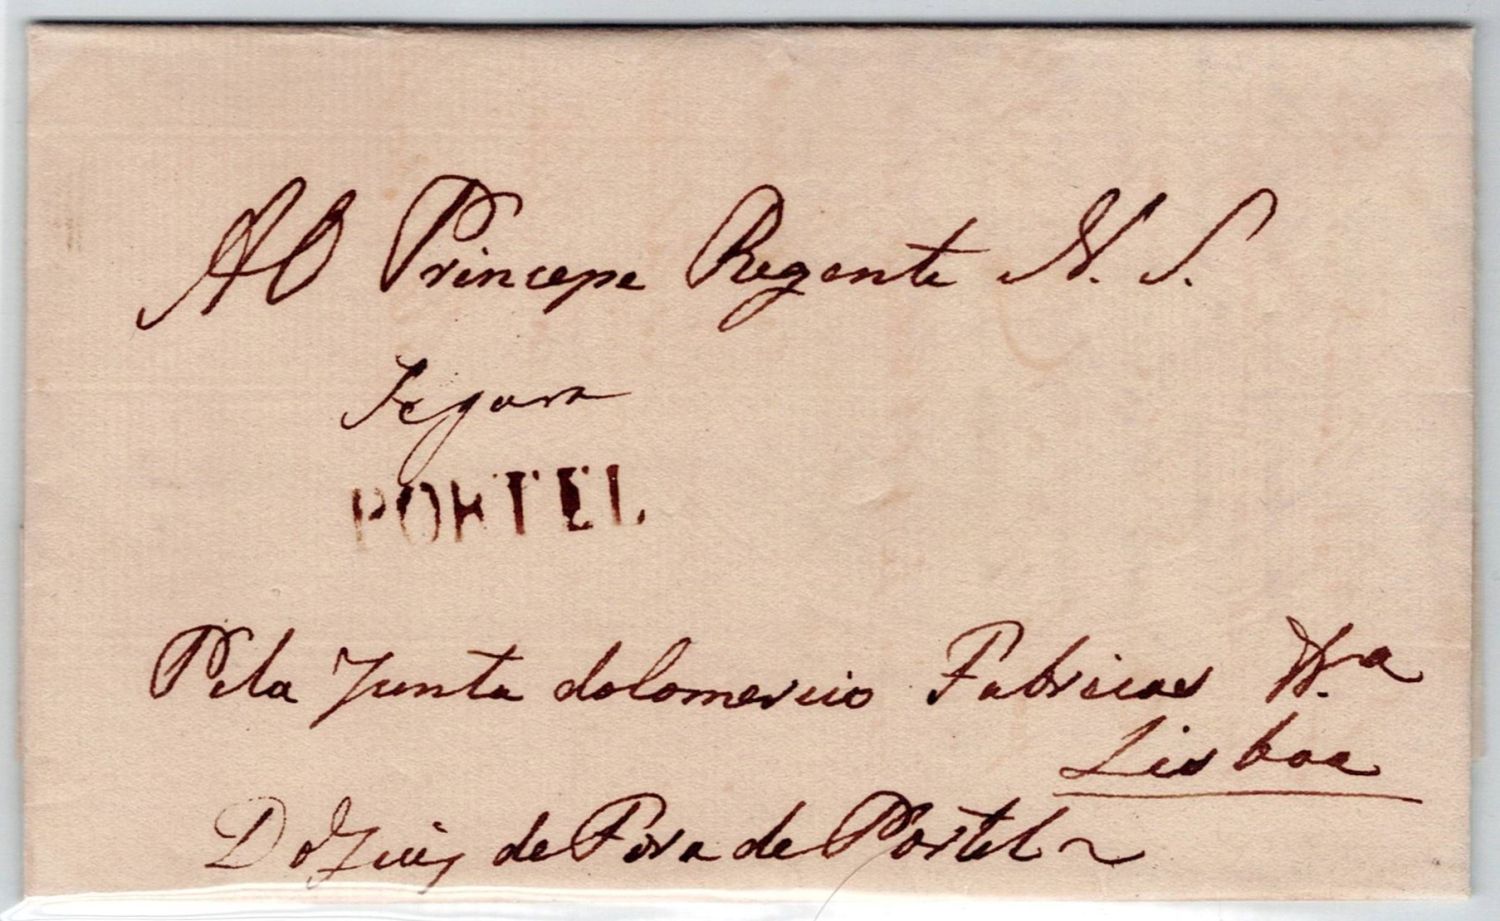 AO Principe Regente N. S.
Segura
PORTEL
Pela Junta do Comercio Fabricas &.a
Lisboa
Do Juis de Fora de Portel